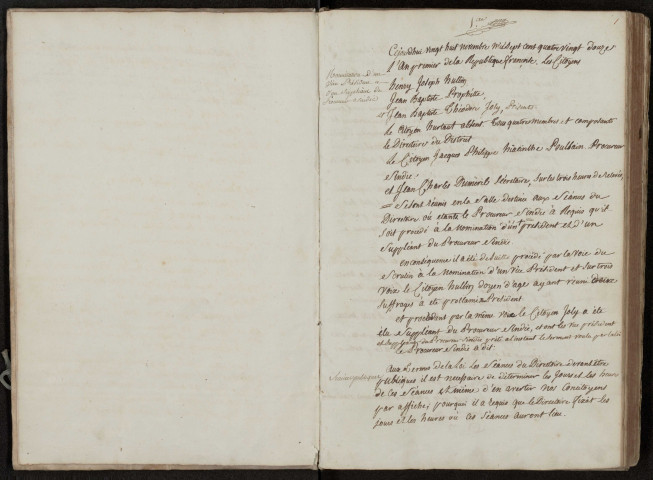 1re
1
Cejourdhuy vingt huit novembre mil sept cent quatre vingt douze
l'An premier de la République françoise, Les Citoyens
Nomination d'un
Vice Président et
d'un Suppléant du
Procureur Sindic
Henry Joseph Hullin
Jean Baptiste Prophette
et Jean Baptiste Théodore Joly, Présents
le Citoyen Hurtaut absent tous quatre membres composants
le Directoire du District
Le Citoyen Jacques Philippe Hiacinthe Procureur
Sindic
et Jean Charles Secrétaire, sur les trois heures de relevée
se sont réunis en la Salle destinée aux Séances du
Directoire où étants le Procureur Sindic à Requis qu'il
soit procédé à la nomination d'un président et d'un
Suppléant du Procureur Sindic
en conséquence il a été de suite procédé par la voie du
Scrutin à la Nomination d'un Vice Président et sur trois
voix le Citoyen Hullin doyen d'age ayant réuni deux
Suffrages à été proclamé Président
et procédant par la même voie le Citoyen Joly a été
élu Suppléant du Procureur Sindic, et ont les vice président
et Suppléant du Procureur Sindic prêté à l'instant le serment voulu par la loi
le Procureur Sindic à dit
Séances publiques
Aux termes de la loi les Séances du Directoire devant être
publiques il est nécessaire de déterminer les jours et les heures
de ces Séances et même d'en avertir nos concitoyens
par affiche; pourquoi il a requis que le Directoire fixât les
jours et les heures où ces Séances auront lieu.